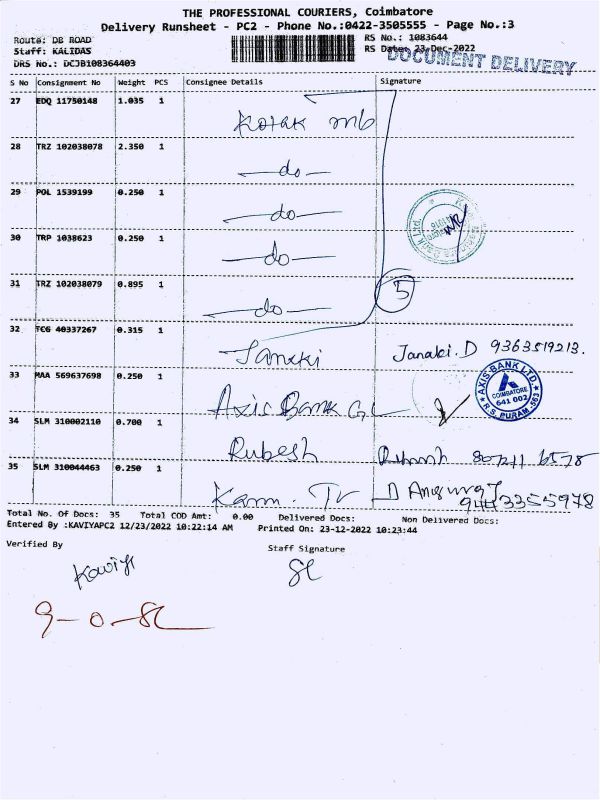 THE PROFESSIONAL COURIERS, Coimbatore
Delivery Runsheet - PC2 - Phone No.:0422-3505555 - Page No.:3
Route: DB ROAD
RS No.: 1083644
Staff: KALIDAS
RS Date: 23-Dec-2022
DRS No.: DCJB108364403
DOCUMENT DELIVERY
S No Consignment No Weight PCS Consignee Details Signature
27 EDQ 11750148 1.035 1
Kotak mb
28 TRZ 102038078 2.350 1
-do-
29 POL 1539199 0.250 1
-do-
30 TRP 1038623 0.250 1
-do-
31 TRZ 102038079 0.895 1
-do-
5
32 TCG 40337267 0.315 1
Janaki Janaki.D 9363519213.
33 MAA 569637698 0.250 1
Axis Bank
AXIS BANK LTD.
COIMBATORE
641 002
R.S. PURAM
34 SLM 310002110 0.700 1
Rubesh
35 SLM 310044463 0.250 1
Total No. Of Docs: 35 Total COD Amt: 0.00 Delivered Docs: Non Delivered Docs:
Entered By :KAVIYAPC2 12/23/2022 10:22:14 AM Printed On: 23-12-2022 10:23:44
Verified By
Staff Signature
9-0-